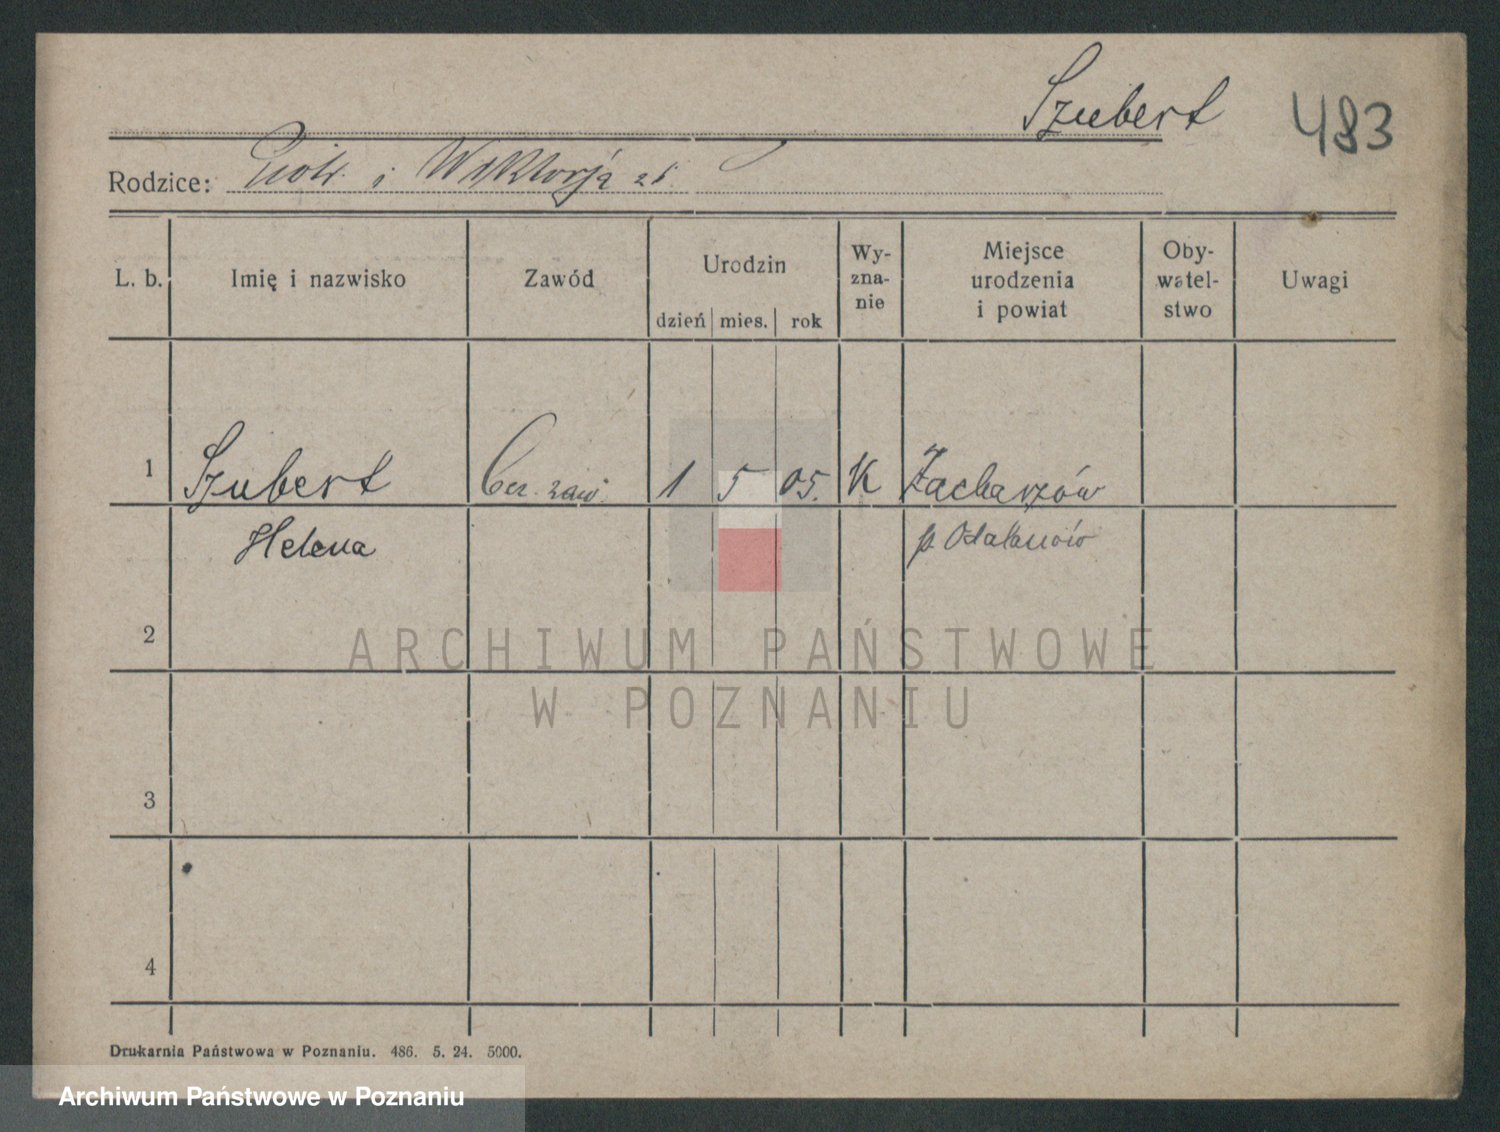 Szubert 483
Rodzice: Piotr i Wiktorja
L. b. Imię i nazwisko Zawód Urodzin dzień mies. rok Wy-zna-nie Miejsce urodzenia i powiat Oby-watel-stwo Uwagi
1 Szubert Bez zaw. 1 5 05. K Zacharzów
Helena p. Odalanów
2
ARCHIWUM PAŃSTWOWE
W POZNANIU
3
4
Drukarnia Państwowa w Poznaniu. 486. 5. 24. 5000.
Archiwum Państwowe w Poznaniu